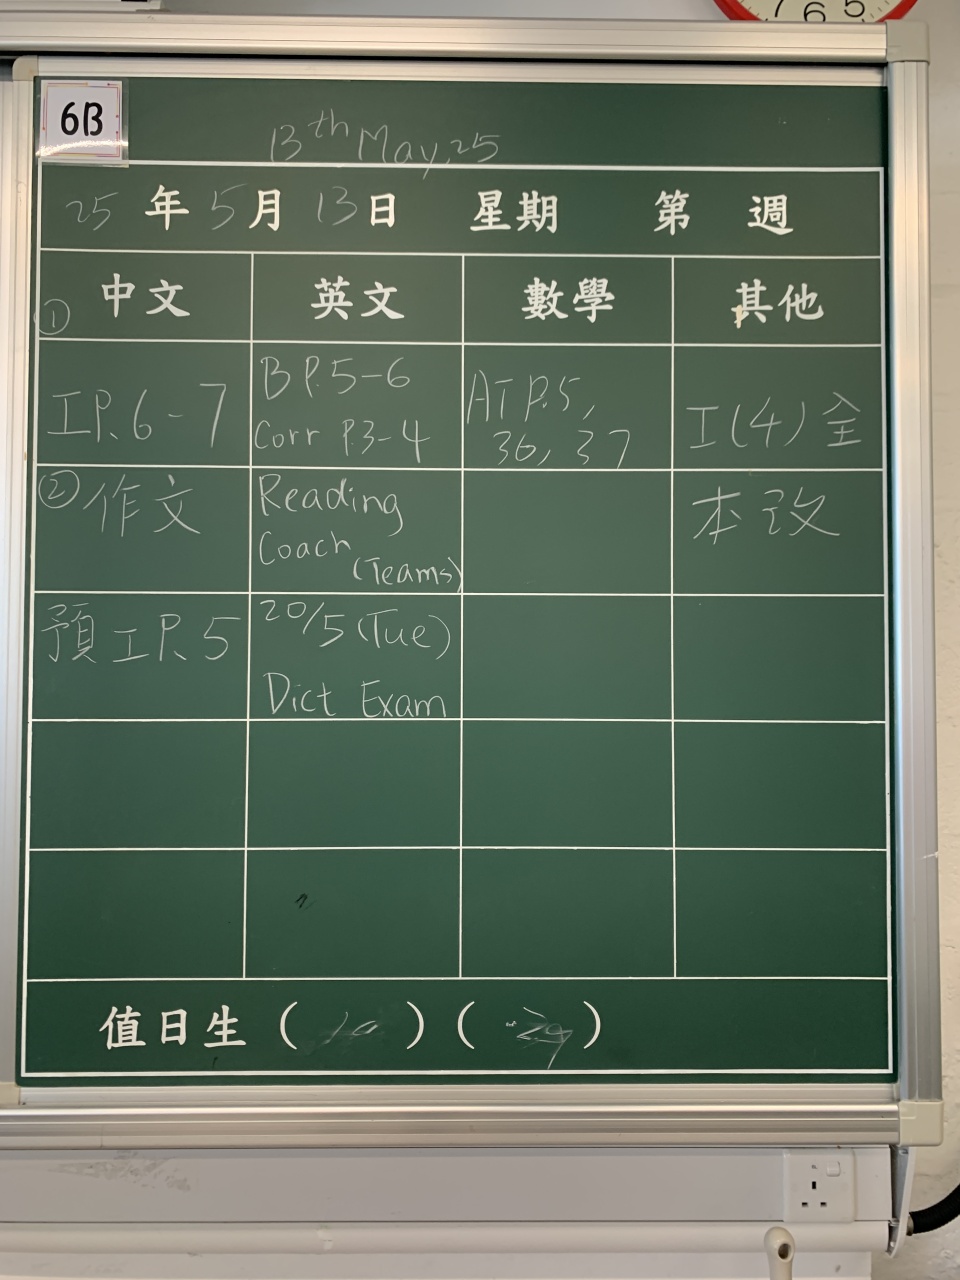 7 6 5
6B
13th May, 25
25 年 5 月 13 日 星期 第 週
① 中文 英文 數學 其他
IP.6-7
B P.5-6
Corr P.3-4
AT P.5,
36, 37
I(4)全
② 作文
Reading
Coach
(Teams)
本改
預 IP.5
20/5 (Tue)
Dict Exam
值日生 ( ) ( 29 )